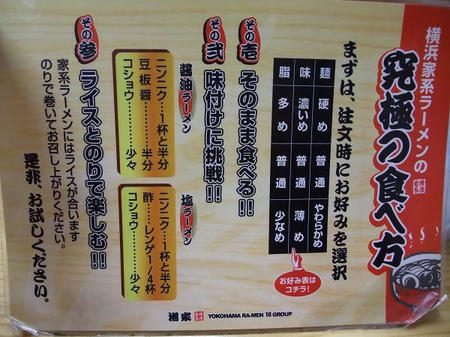 横浜家系ラーメンの
究極の食べ方
まずは、注文時にお好みを選択
麺 硬め 普通 やわらかめ
味 濃いめ 普通 薄め
脂 多め 普通 少なめ
お好み表は
コチラ!
その壱 そのまま食べる!!
その弐 味付けに挑戦!!
醤油ラーメン
ニンニク…1杯と半分
豆板醤……半分
コショウ……少々
塩ラーメン
ニンニク…1杯と半分
酢…レンゲ1/4杯
コショウ……少々
その参 ライスとのりで楽しむ!!
家系ラーメンにはライスが合います
のりで巻いてお召し上がりください。
是非、お試しください。
YOKOHAMA RA-MEN 16 GROUP